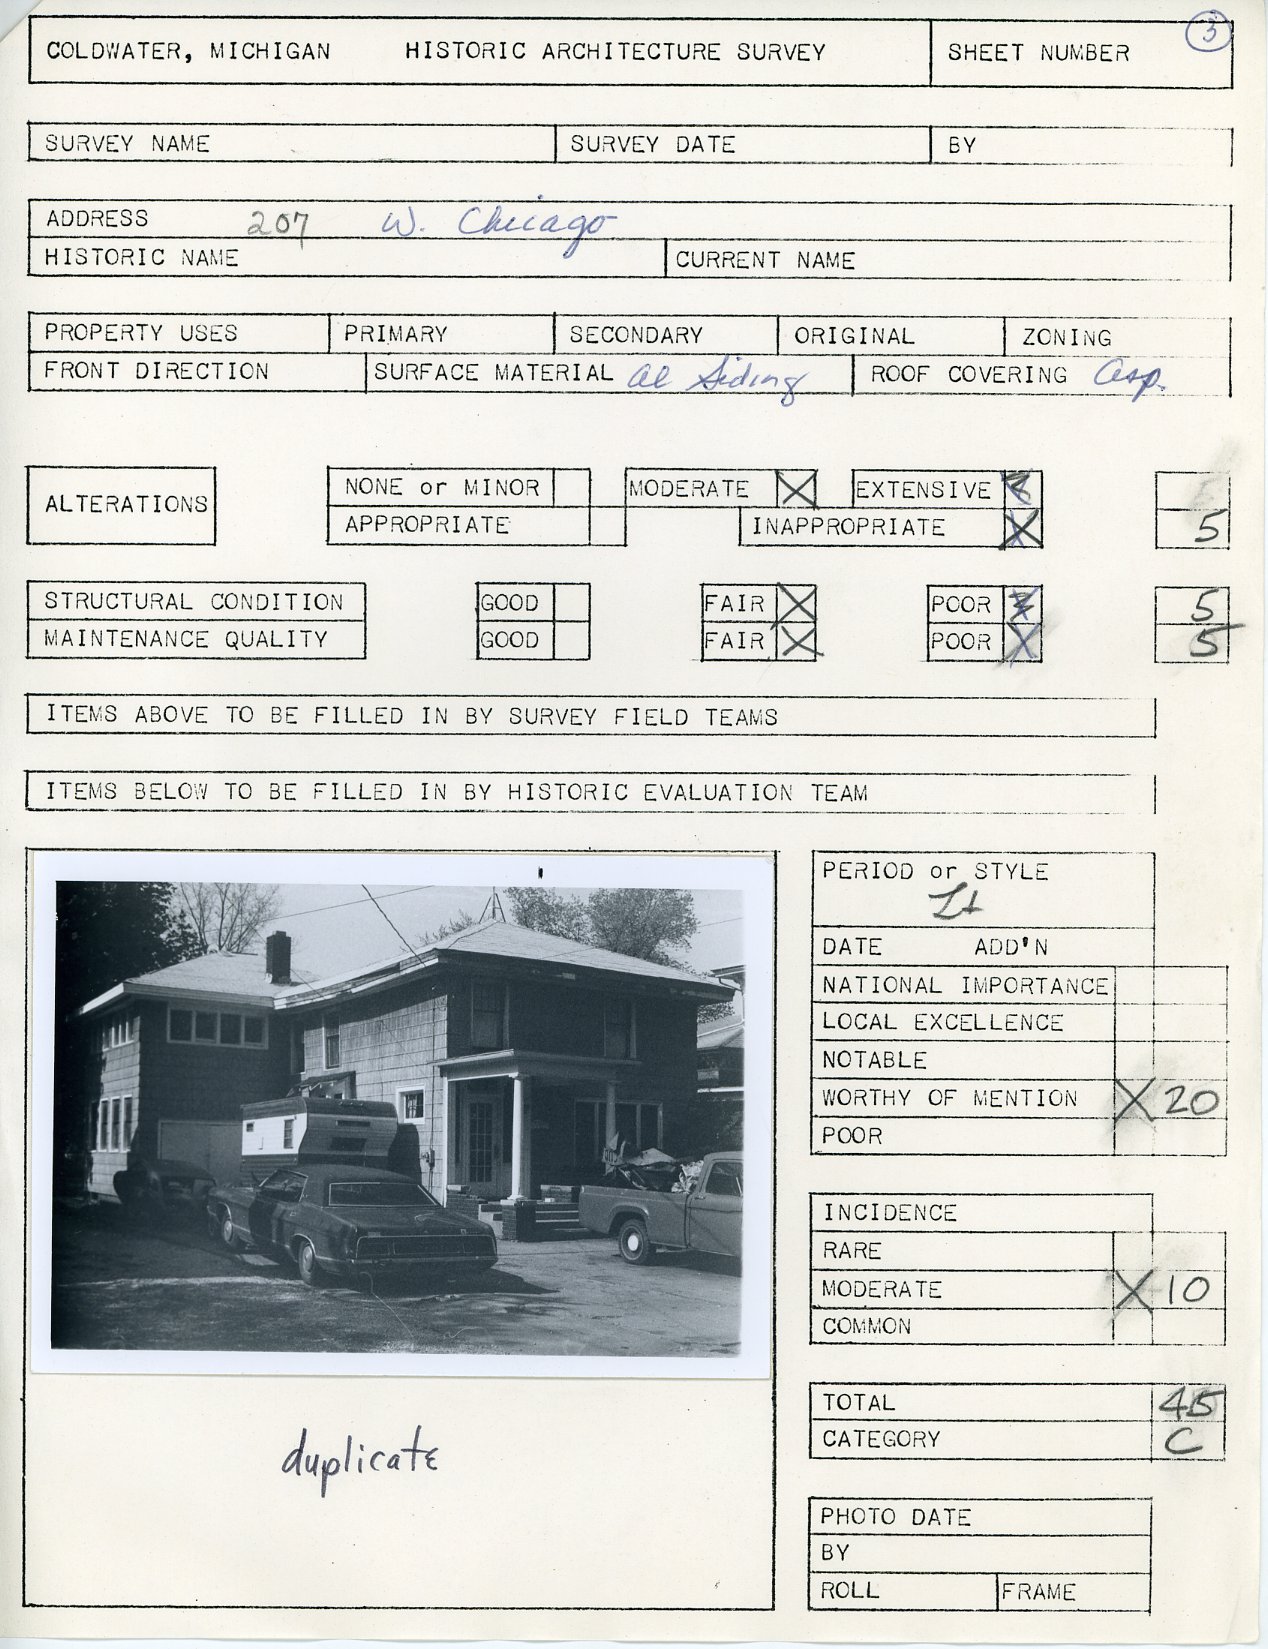 3
COLDWATER, MICHIGAN HISTORIC ARCHITECTURE SURVEY SHEET NUMBER
SURVEY NAME SURVEY DATE BY
ADDRESS 207 W. Chicago
HISTORIC NAME CURRENT NAME
PROPERTY USES PRIMARY SECONDARY ORIGINAL ZONING
FRONT DIRECTION SURFACE MATERIAL Al Siding ROOF COVERING Asp.
ALTERATIONS
NONE or MINOR MODERATE X EXTENSIVE
APPROPRIATE INAPPROPRIATE X 5
STRUCTURAL CONDITION GOOD FAIR X POOR 5
MAINTENANCE QUALITY GOOD FAIR X POOR X 5
ITEMS ABOVE TO BE FILLED IN BY SURVEY FIELD TEAMS
ITEMS BELOW TO BE FILLED IN BY HISTORIC EVALUATION TEAM
duplicate
PERIOD or STYLE
DATE ADD'N
NATIONAL IMPORTANCE
LOCAL EXCELLENCE
NOTABLE
WORTHY OF MENTION X 20
POOR
INCIDENCE
RARE
MODERATE X 10
COMMON
TOTAL 45
CATEGORY C
PHOTO DATE
BY
ROLL FRAME